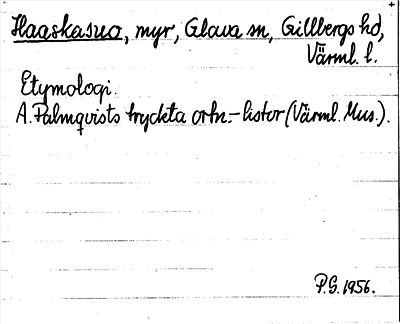 Haaskasuo, myr, Glava sn, Gillbergs hd,
Värml. l.
Etymologi.
A. Palmqvists tryckta ortn.-listor (Värml. Mus.).
P.G. 1956.